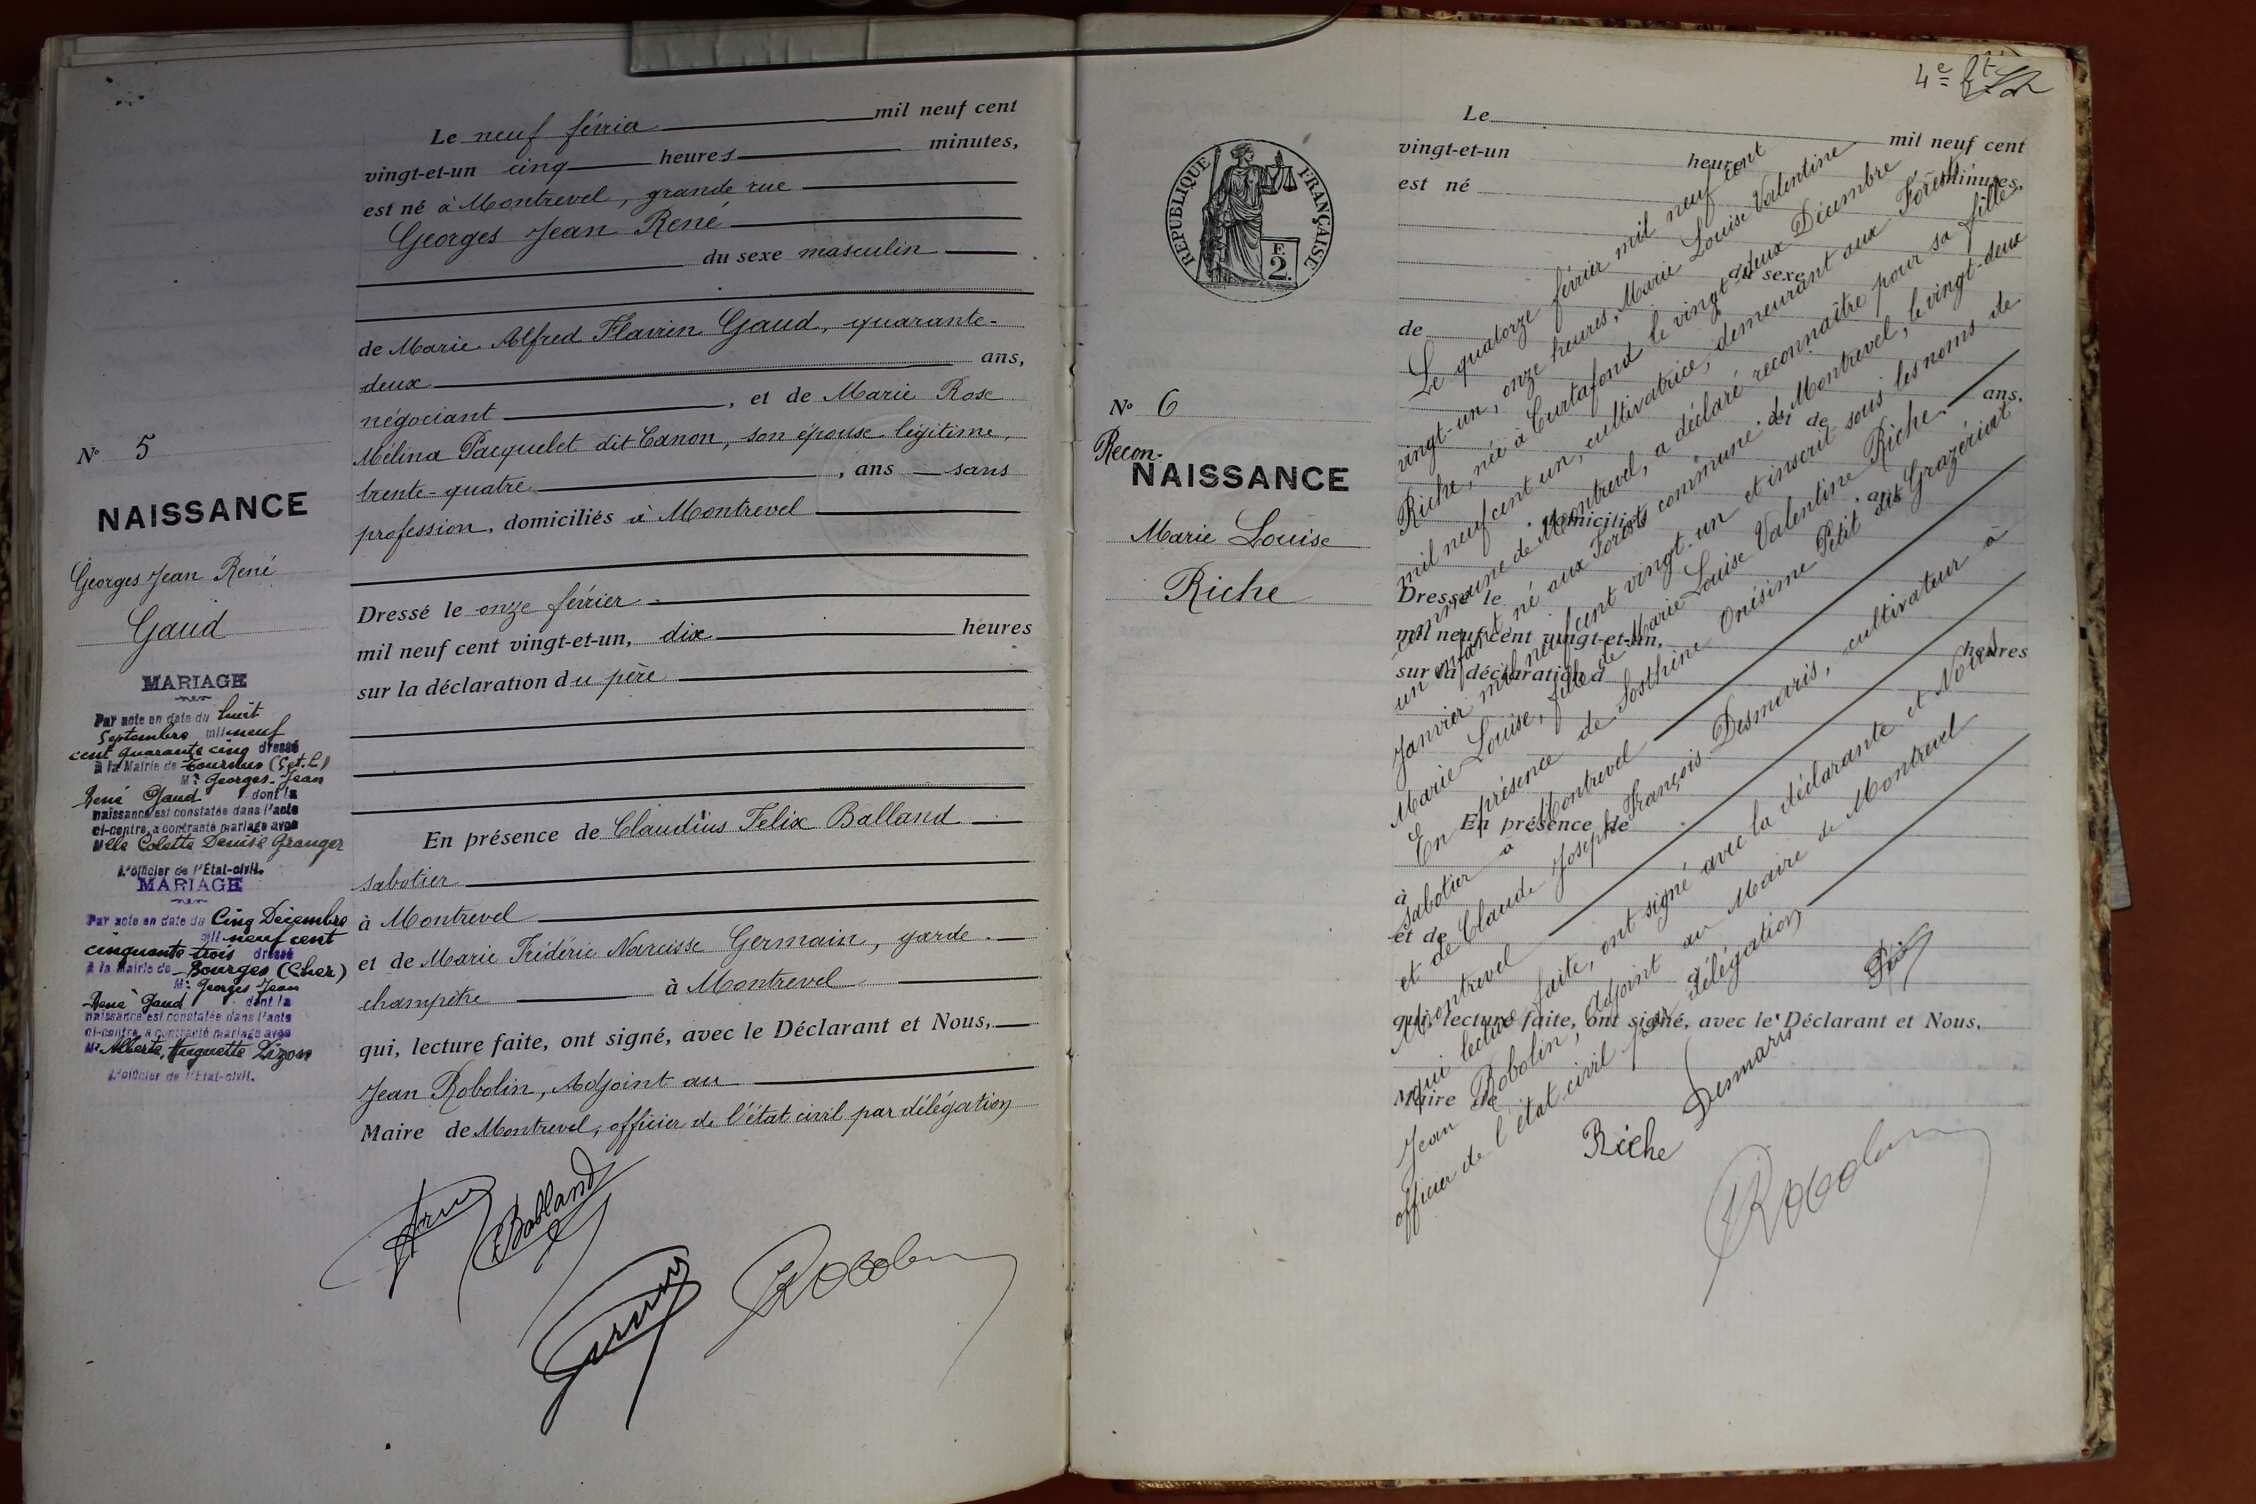 Le neuf février mil neuf cent
vingt-et-un cinq heures minutes,
est né à Montrevel, grande rue
Georges Jean René
du sexe masculin
de Marie Alfred Flavien Gaud, quarante-
deux ans,
négociant, et de Marie Rose
Mélina Pacquelet dit Canon, son épouse légitime,
trente-quatre, ans sans
profession, domiciliés à Montrevel
Dressé le onze février
mil neuf cent vingt-et-un, dix heures
sur la déclaration du père
En présence de Claudius Felix Balland
sabotier
à Montrevel
et de Marie Frédéric Narcisse Germain, garde-
champêtre à Montrevel
qui, lecture faite, ont signé, avec le Déclarant et Nous,
Jean Robolin, Adjoint au
Maire de Montrevel, officier de l'état civil par délégation
Balland
Robolin
No 5
NAISSANCE
Georges Jean René
Gaud
MARIAGE
Par acte en date du huit
Septembre mil neuf
cent quarante cinq dressé
à la Mairie de Tournus (S.et.L)
Mr Georges-Jean
René Gaud dont la
naissance est constatée dans l'acte
ci-contre, a contracté mariage avec
Mlle Colette Denise Granger
L'officier de l'État-civil.
MARIAGE
Par acte en date du Cinq Décembre
mil neuf cent
cinquante trois dressé
à la Mairie de Bourges (Cher)
Mr Georges Jean
René Gaud dont la
naissance est constatée dans l'acte
ci-contre, a contracté mariage avec
Me Alberte, Huguette Dizon
L'officier de l'État-civil.
4e
RÉPUBLIQUE FRANÇAISE
F.
2.
No 6
Recon.
NAISSANCE
Marie Louise
Riche
Le
mil neuf cent
vingt-et-un heures minutes,
est né
du sexe
de
ans,
et de
, ans
domiciliés
Dressé le
mil neuf cent vingt-et-un, heures
sur la déclaration d
En présence de
à
et de
à
qui, lecture faite, ont signé, avec le Déclarant et Nous,
Maire de
Le quatorze février mil neuf cent
vingt-un, onze heures, Marie Louise Valentine
Riche, née à Curtafond le vingt deux Décembre
mil neuf cent un, cultivatrice, demeurant aux Forests
commune de Montrevel, a déclaré reconnaître pour sa fille,
un enfant né aux Forests commune de Montrevel, le vingt-deux
Janvier mil neuf cent vingt-un et inscrit sous les noms de
Marie Louise, fille de Marie Louise Valentine Riche.
En présence de Sosthine Onésime Petit dit Grazériat
sabotier à Montrevel
et de Claude Joseph François Desmaris, cultivateur à
Montrevel
qui lecture faite, ont signé avec la déclarante et Nous
Jean Robolin, Adjoint au Maire de Montrevel
officier de l'état civil par délégation
Riche
Desmaris
Robolin